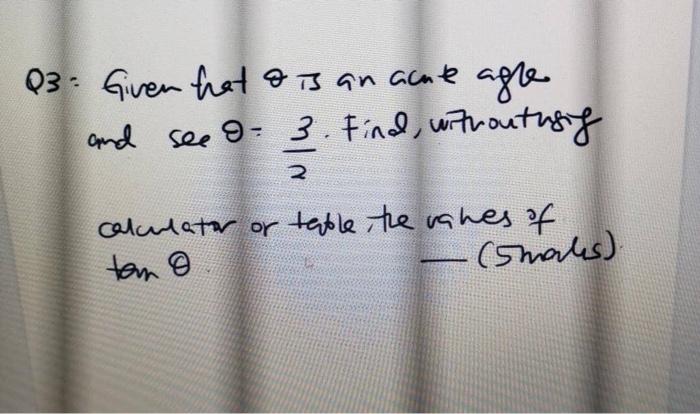 Q3: Given that θ is an acute agle
and sec θ = 3/2. Find, without using
calculator or table, the values of
tan θ — (5 marks).